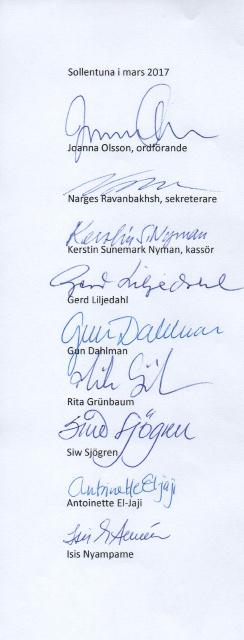 Sollentuna i mars 2017
Joanna Olsson, ordförande
Narges Ravanbakhsh, sekreterare
Kerstin S Nyman
Kerstin Sunemark Nyman, kassör
Gerd Liljedahl
Gerd Liljedahl
Gun Dahlman
Gun Dahlman
Rita Grünbaum
Siw Sjögren
Siw Sjögren
Antoinette El-jaji
Antoinette El-Jaji
Isis Nyampame